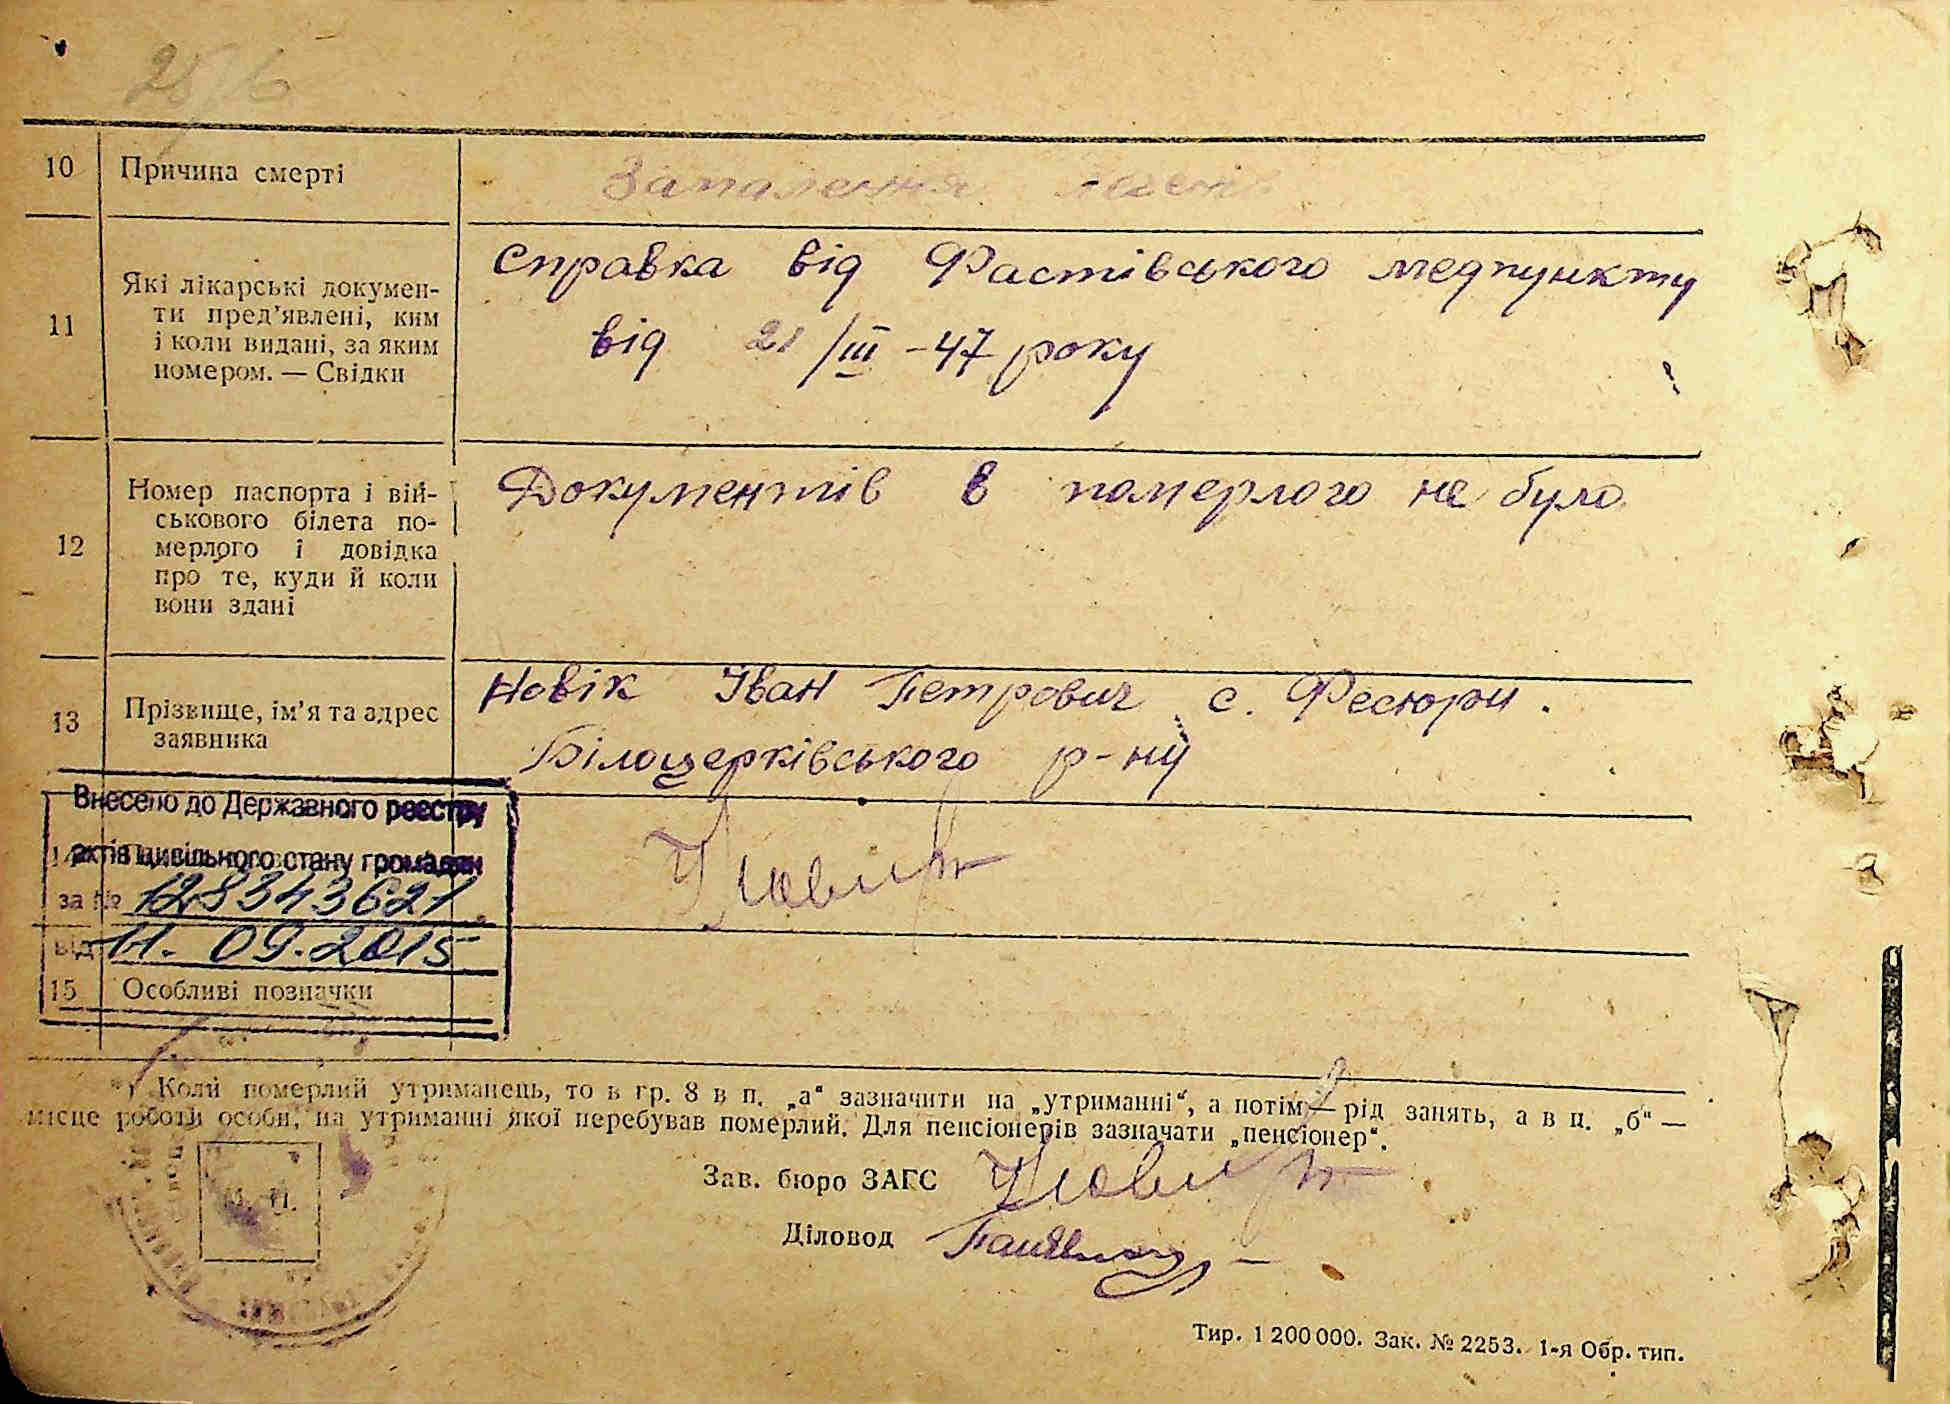 10 Причина смерті Запалення легенів
11 Які лікарські докумен-
ти пред'явлені, ким
і коли видані, за яким
номером. — Свідки
Справка від Фастівського медпункту
від 21/III -47 року
12 Номер паспорта і вій-
ськового білета по-
мерлого і довідка
про те, куди й коли
вони здані
Документів в померлого не було
13 Прізвище, ім'я та адрес
заявника
Новік Іван Петрович с. Фесюри.
Білоцерківського р-ну
Внесено до Державного реєстру
актів цивільного стану громадян
за № 128343621
від 11.09.2015
15 Особливі позначки
*) Коли померлий утриманець, то в гр. 8 в п. „а" зазначити на „утриманні", а потім — рід занять, а в п. „б" —
місце роботи особи, на утриманні якої перебував померлий. Для пенсіонерів зазначати „пенсіонер".
Зав. бюро ЗАГС
Діловод
М. П.
Тир. 1 200 000. Зак. № 2253. 1-я Обр. тип.